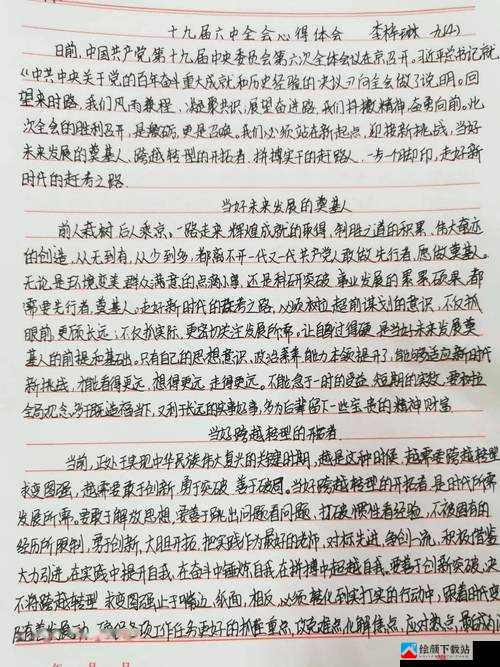 十九届六中全会心得体会 李梓琳
日前，中国共产党第十九届中央委员会第六次全体会议在京召开。习近平总书记就
《中共中央关于党的百年奋斗重大成就和历史经验的决议》向全会做了说明。回
望来时路，我们风雨兼程，凝聚共识，展望奋进路，我们抖擞精神，奋勇向前。此
次全会的胜利召开，是激励，更是召唤，我们必须站在新起点，迎接新挑战，当好
未来发展的奠基人、跨越转型的开拓者、拼搏实干的赶路人，一步一个脚印，走好新
时代的赶考之路.
当好未来发展的奠基人
前人栽树，后人乘凉，一路走来，辉煌成就的取得，制胜之道的积累，伟大奇迹
的创造，从无到有，从少到多，都离不开一代又一代共产党人敢做先行者，愿做奠基人。
无论是环境变美、群众满意的点滴小事，还是科研突破、事业发展的累累硕果，都
需要先行者，奠基人。走好新时代的赶考之路，必须树立超前谋划的意识，不仅抓
眼前，更顾长远；不仅抓实际，更密切关注发展所需。让自身过得硬，是当好未来发展奠
基人的前提和基础。只有自己的思想意识，政治素养，能力本领提升了，能够适应新时代
新挑战，才能看得更远，想得更远，走得更远。不能急于一时的受益，短期的实效，要树立
全局观念，多干既造福当下，又利于长远的实事好事，多为后辈留下一些宝贵的精神财富.
当好跨越转型的开拓者
当前，正处于实现中华民族伟大复兴的关键时期，越是这种时候，越需要跨越转型
求变图强，越需要敢于创新，勇于突破，善于破圈。当好跨越转型的开拓者，是时代所需
发展所需，要敢于解放思想，要善于跳出问题看问题，打破惯性看经验，不被固有的
经历所限制，勇于创新，大胆开拓，把实践作为最好的老师，对标先进，争创一流，积极借势
大力引进，在实践中提升自我，在奋斗中锤炼自我，在拼搏中超越自我。要善于创新突破，决
不将跨越转型，求变图强止于嘴边，纸面，相反，必须转化到实打实的行动中，跟着时代变
着发展动，确保各项工作任务更好的抓住重点，攻克难点，化解焦点，应对热点，
年 月 日
绘颜下载站